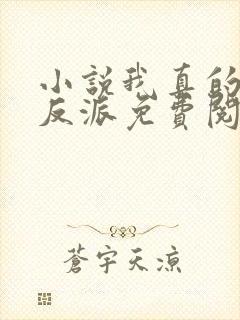 小說我真的
反派免費閱
蒼宇天涼